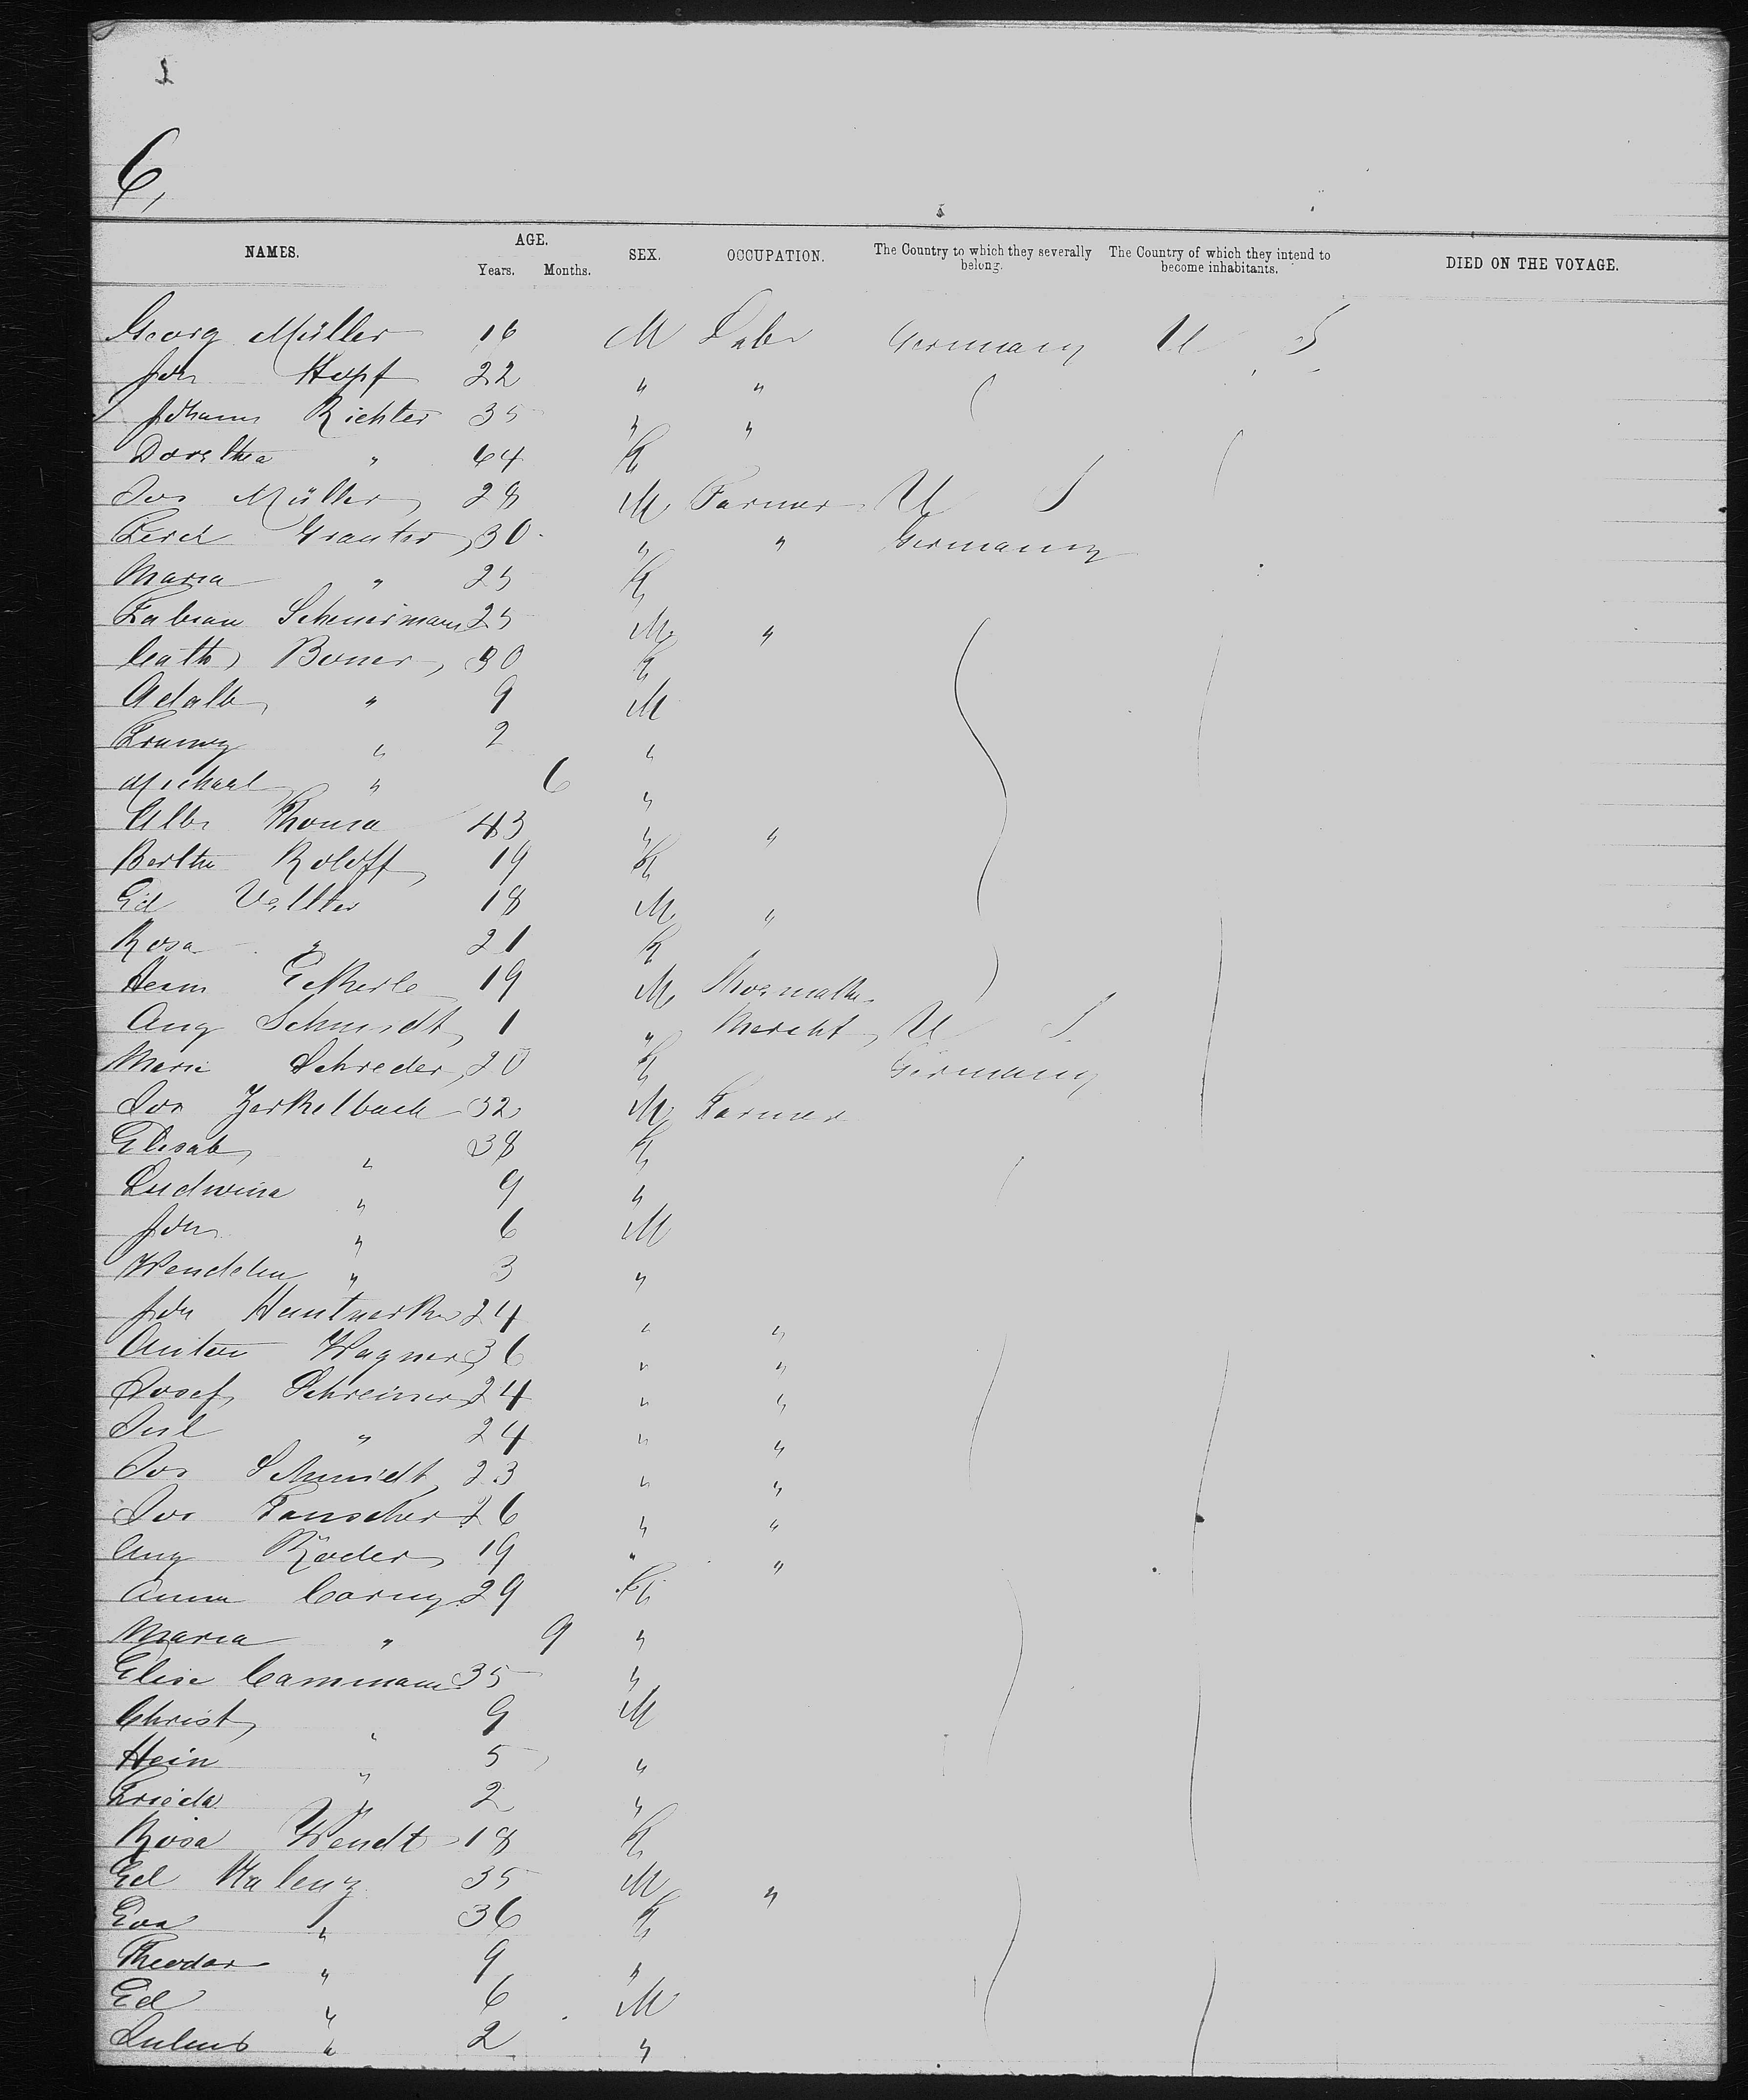 6,
NAMES. AGE. Years. Months. SEX. OCCUPATION. The Country to which they severally belong. The Country of which they intend to become inhabitants. DIED ON THE VOYAGE.
Georg Müller 16 M Labr Germany U S
Joh Hopf 22 " "
Johann Richter 35 " "
Dorethea " 64 F
Jos Müller 28 M Farmer U S
Ferd Granter 30 " " Germany
Maria " 25 F
Fabian Scheuermann 25 M "
Cath Boner 30 F
Adalb " 9 M
Franz " 2 "
Michael " 6 "
Albr Thoma 43 " "
Bertha Roloff 19 F
Ed Vollter 18 M "
Rosa " 21 F
Herm Eckerle 19 M Shoemaker
Aug Schmidt 1 " Mercht U S
Marie Schreder 20 F Germany
Jos Zerkelbach 32 M Farmer
Elisab " 38 F
Ludwina " 9 "
Joh " 6 M
Wendelin " 3 "
Joh 24 " "
Anton Wagner 36 " "
Josef Schreiner 24 " "
Jul " 24 " "
Jos Schmidt 23 " "
Jos Tauscher 26 " "
Aug Röder 19 " "
Anna Corny 29 F
Maria " 9 "
Elise Cammann 35 "
Christ " 9 M
Hein " 5 "
Frieda " 2 "
Rosa Wendt 18 F
Ed Malenz 35 M "
Eva " 36 F
Theodor " 9 "
Ed " 6 M
Julius " 2 "